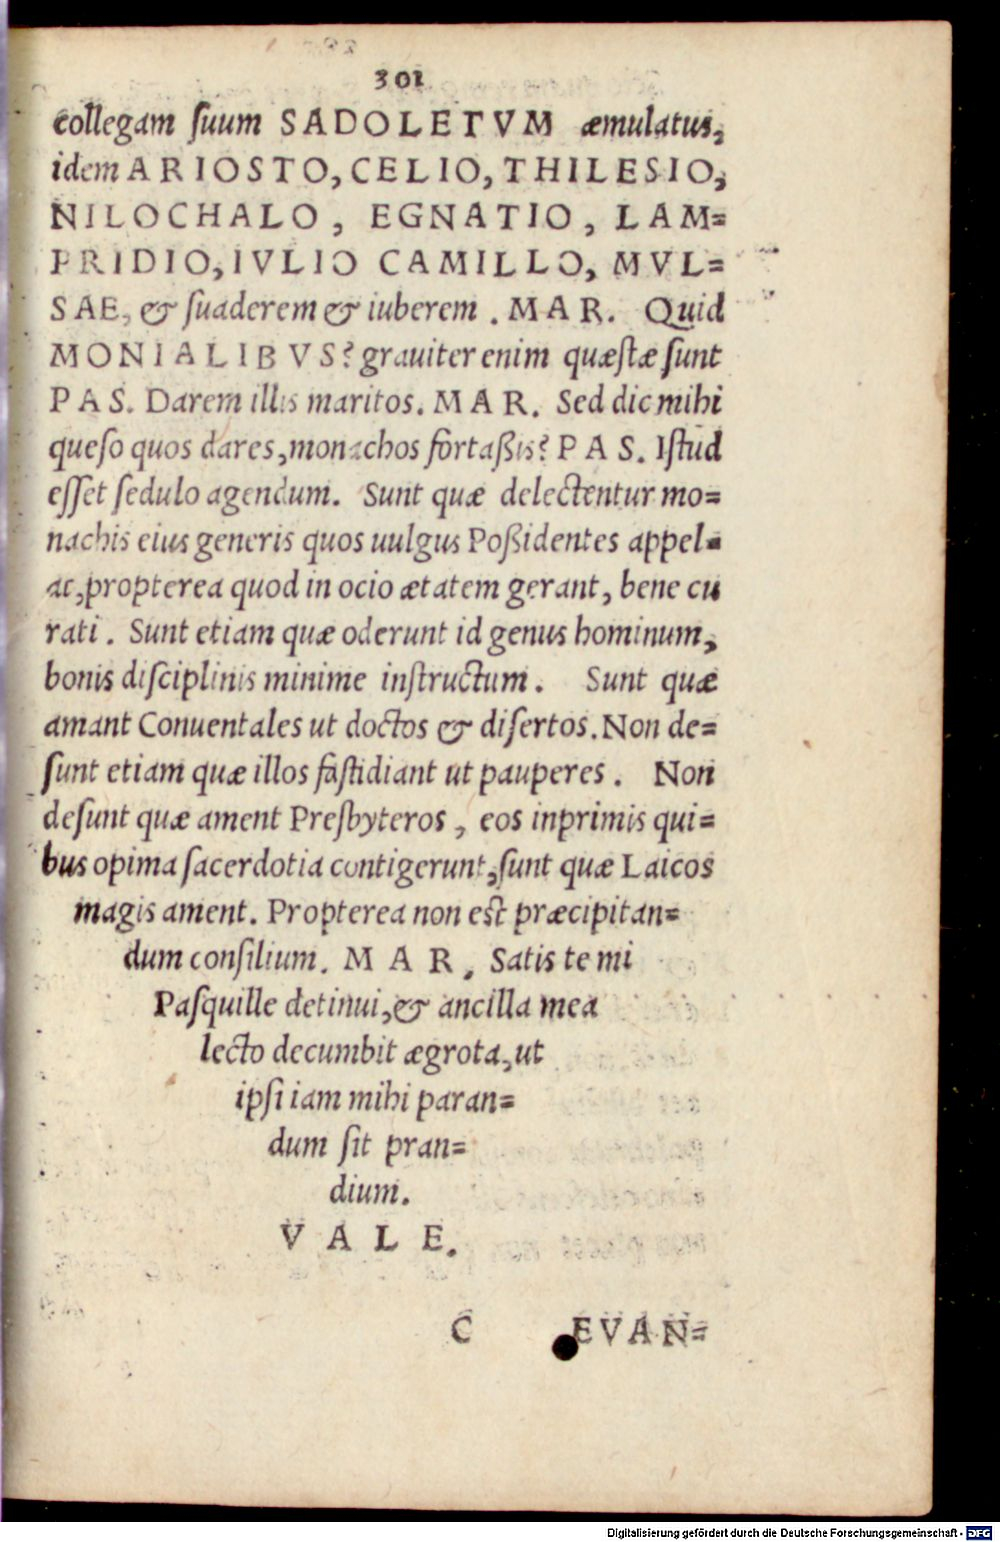 301
collegam suum SADOLETVM æmulatus,
idem ARIOSTO, CELIO, THILESIO,
NILOCHALO, EGNATIO, LAM=
PRIDIO, IVLIO CAMILLO, MVL=
SAE, & suaderem & iuberem. MAR. Quid
MONIALIBVS? grauiter enim quæstæ sunt
PAS. Darem illis maritos. MAR. Sed dic mihi
queso quos dares, monachos fortaßis? PAS. Istud
esset sedulo agendum. Sunt quæ delectentur mo=
nachis eius generis quos uulgus Poßidentes appel=
at, propterea quod in ocio ætatem gerant, bene cu
rati. Sunt etiam quæ oderunt id genus hominum,
bonis disciplinis minime instructum. Sunt quæ
amant Conuentales ut doctos & disertos. Non de=
sunt etiam quæ illos fastidiant ut pauperes. Non
desunt quæ ament Presbyteros, eos inprimis qui=
bus opima sacerdotia contigerunt, sunt quæ Laicos
magis ament. Propterea non est præcipitan=
dum consilium. MAR. Satis te mi
Pasquille detinui, & ancilla mea
lecto decumbit ægrota, ut
ipsi iam mihi paran=
dum sit pran=
dium.
VALE.
C EVAN=
Digitalisierung gefördert durch die Deutsche Forschungsgemeinschaft - DFG